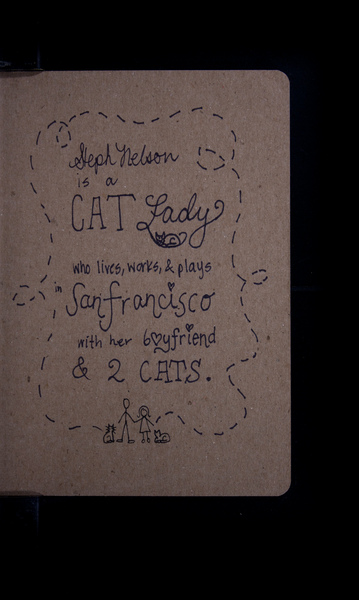 Steph Nelson
is a
CAT Lady
who lives, works, & plays
in Sanfrancisco
with her boyfriend
& 2 CATS.